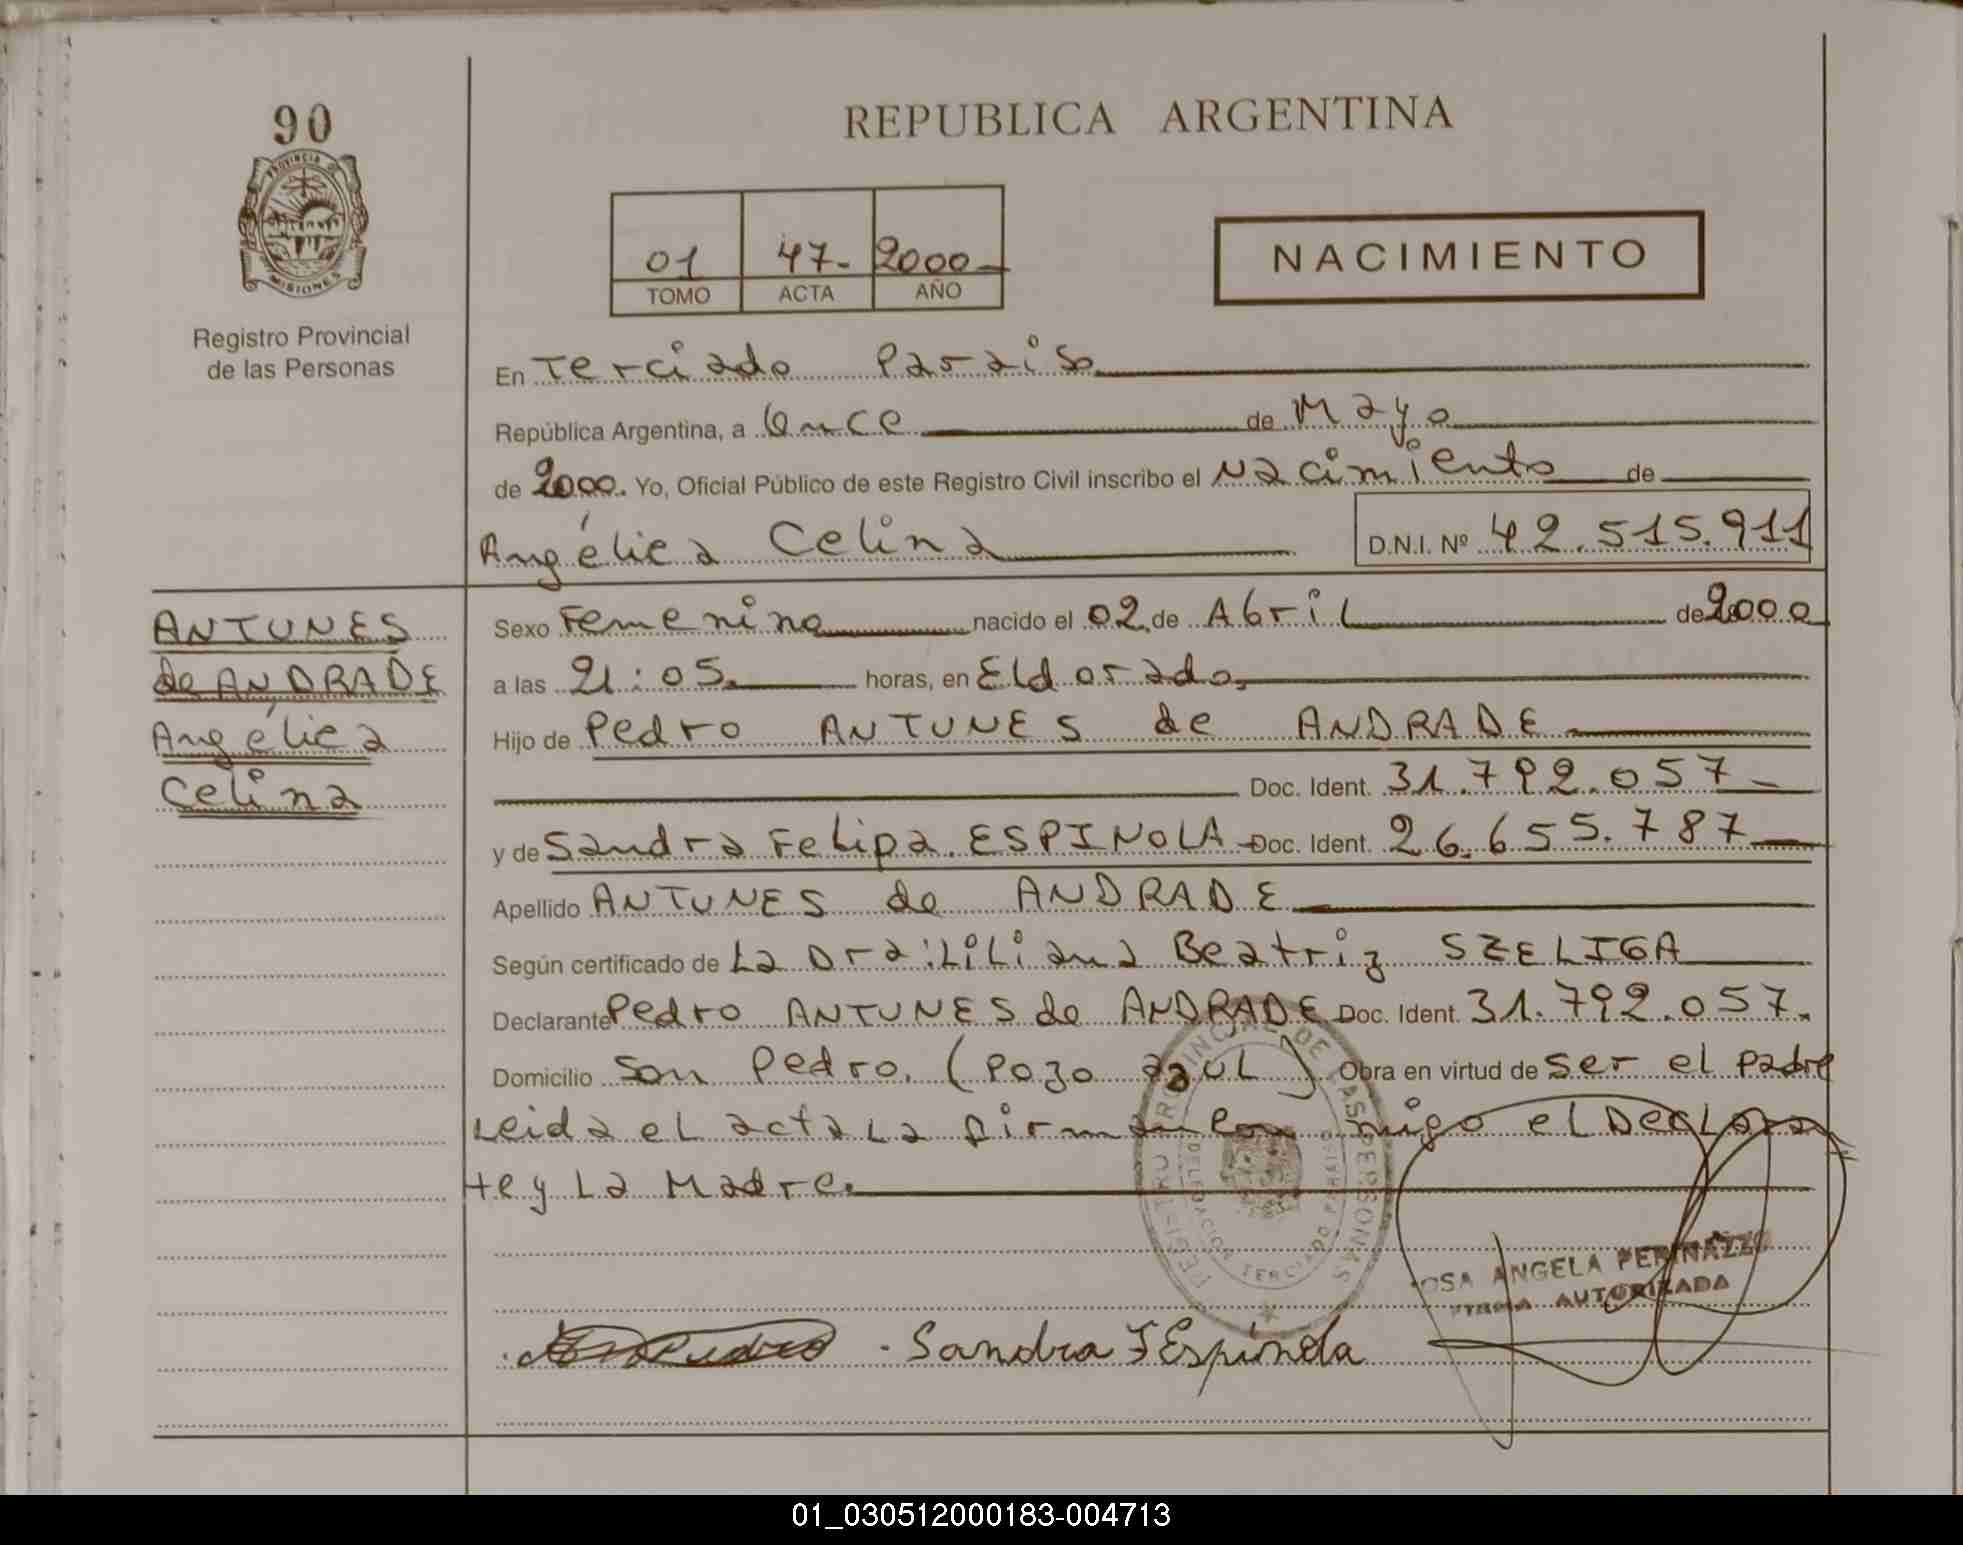 90
PROVINCIA DE
MISIONES
Registro Provincial
de las Personas
REPUBLICA ARGENTINA
01 47- 2000
TOMO ACTA AÑO
NACIMIENTO
En Terciado Paraiso
República Argentina, a Once de Mayo
de 2000. Yo, Oficial Público de este Registro Civil inscribo el Nacimiento de
Angélica Celina D.N.I. Nº 42.515.911
ANTUNES
de ANDRADE
Angélica
Celina
Sexo Femenino nacido el 02 de Abril de 2000
a las 21:05. horas, en Eldorado.
Hijo de Pedro ANTUNES de ANDRADE
Doc. Ident. 31.792.057
y de Sandra Felipa ESPINOLA Doc. Ident. 26.655.787
Apellido ANTUNES de ANDRADE
Según certificado de La Dra: Liliana Beatriz SZELIGA
Declarante Pedro ANTUNES de ANDRADE Doc. Ident. 31.792.057.
Domicilio San Pedro. (Pozo azul) Obra en virtud de ser el padre
Leida el acta La firman con migo el Declaran
te y La Madre.
REGISTRO PROVINCIAL DE LAS PERSONAS
DELEGACION TERCIADO PARAISO
OSA ANGELA PERINAZZO
FIRMA AUTORIZADA
Pedro - Sandra F Espínola
01_030512000183-004713